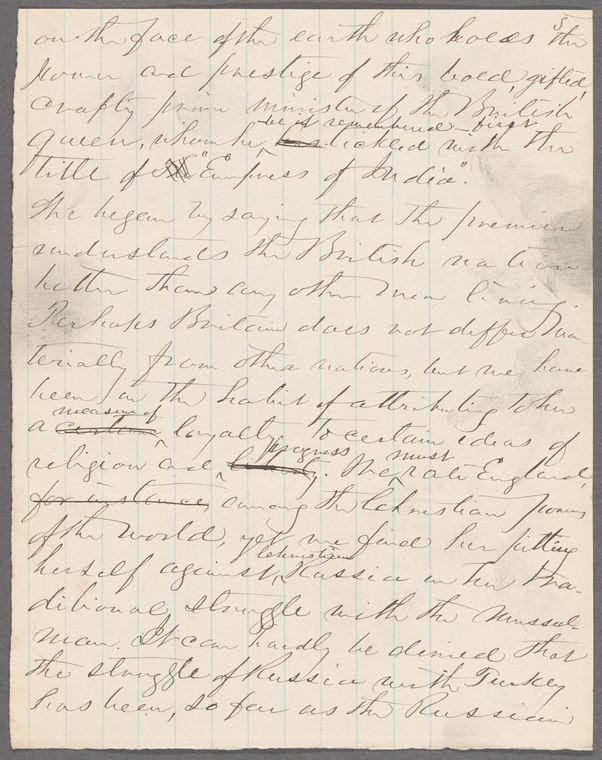 on the face of the earth who holds the
power and prestige of this bold, gifted,
crafty prime minister of the British
queen, whom he, be it remembered – first tickled with the
title of "Empress of India".
He began by saying that the premier
understands the British nation
better than any other man living.
Perhaps Britain does not differ ma-
terially from other nations, but we have
been in the habit of attributing to her
a certain measure of loyalty to certain ideas of
religion and liberty progress. We must rate England,
for instance, among the Christian powers
of the world, yet we find her pitting
herself against Christian Russia in her tra-
ditional struggle with the Mussul-
man. It can hardly be denied that
the struggle of Russia with Turkey
has been, so far as the Russian